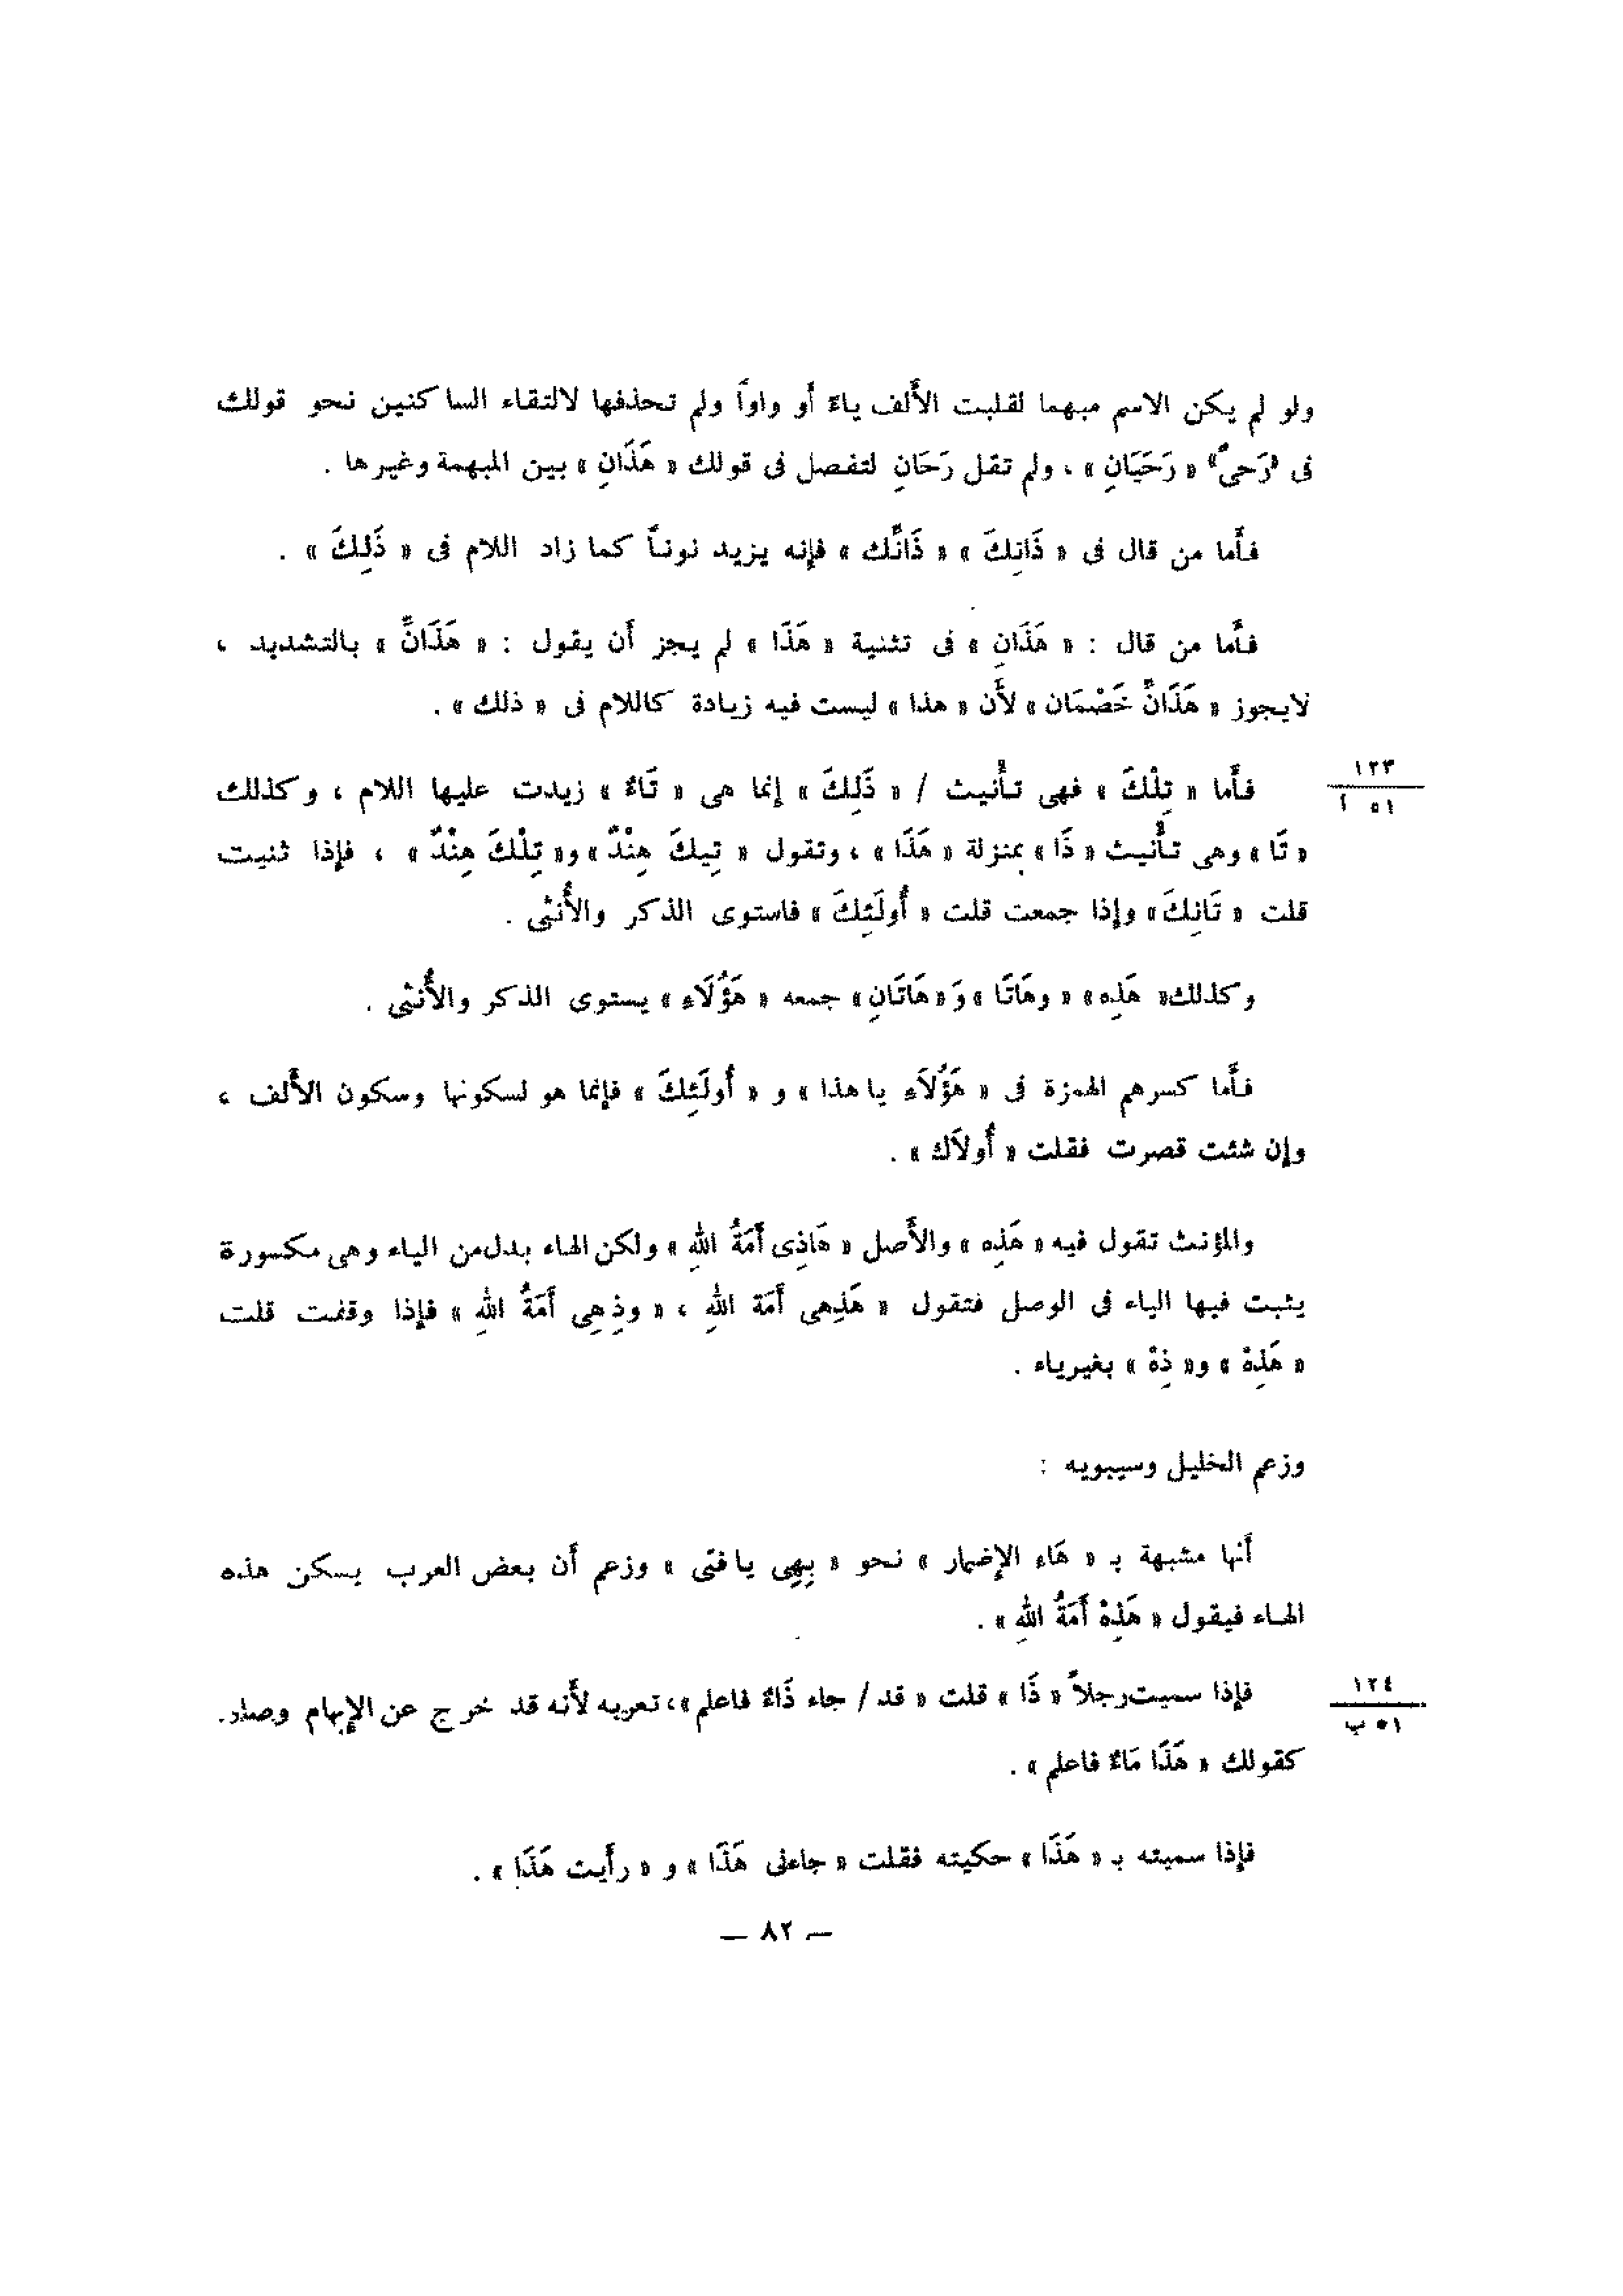 ولو لم يكن الاسم مبهما لقلبت الأَلف ياءً أَو واواً ولم تحذفها لالتقاء الساكنين نحو قولك
فى «رَحىً» « رَحَيَانِ » ، ولم تقل رَحَانِ لتفصل فى قولك « هَذَانِ » بين المبهمة وغيرها .
فأَما من قال فى « ذَانِكَ » « ذَانِّك » فإنه يزيد نوناً كما زاد اللام فى « ذَلِكَ » .
فأَما من قال : « هَذَانِ » فى تثنية « هَذَا » لم يجز أَن يقول : « هَذَانِّ » بالتشديد ،
لايجوز « هَذَانِّ خَصْمَان » لأَن « هذا » ليست فيه زيادة كاللام فى « ذلك » .
١٢٣
٥١ أ
فأَما « تِلْكَ » فهى تأْنيث / « ذَلِكَ » إنما هى « تَاءٌ » زيدت عليها اللام ، وكذلك
« تَا » وهى تأْنيث « ذَا » بمنزلة « هَذَا » ، وتقول « تِيكَ هِنْدٌ » و« تِلْكَ هِنْدٌ » ، فإذا ثنيت
قلت « تَانِكَ » وإذا جمعت قلت « أُولَئِكَ » فاستوى الذكر والأُنثى .
وكذلك« هَذِه » « وهَاتَا » وَ« هَاتَانِ » جمعه « هَؤُلَاءِ » يستوى الذكر والأُنثى .
فأَما كسرهم الهمزة فى « هَؤُلَاءِ يا هذا » و « أُولَئِكَ » فإنما هو لسكونها وسكون الأَلف ،
وإن شئت قصرت فقلت « أُولاَك » .
والمؤنث تقول فيه « هَذِه » والأَصل « هَاذِى أَمَةُ اللهِ » ولكن الهاء بدل من الياء وهى مكسورة
يثبت فيها الياء فى الوصل فتقول « هَذِهى أَمَة اللهِ ، « وذِهِى أَمَةُ اللهِ » فإذا وقفت قلت
« هَذِهْ » و« ذِهْ » بغير ياء .
وزعم الخليل وسيبويه :
أَنها مشبهة بـ « هَاء الإضمار » نحو « بِهِى يا فتى » وزعم أَن بعض العرب يسكن هذه
الهاء فيقول « هَذِهْ أَمَةُ اللهِ » .
١٢٤
٥١ ب
فإذا سميت رجلاً « ذَا » قلت « قد / جاء ذَاءٌ فاعلم » ، تعربه لأَنه قد خرج عن الإبهام وصار
كقولك « هَذَا مَاءٌ فاعلم » .
فإذا سميته بـ « هَذَا » حكيته فقلت « جاءنى هَذَا » و « رأَيت هَذَا » .
— ٨٢ —